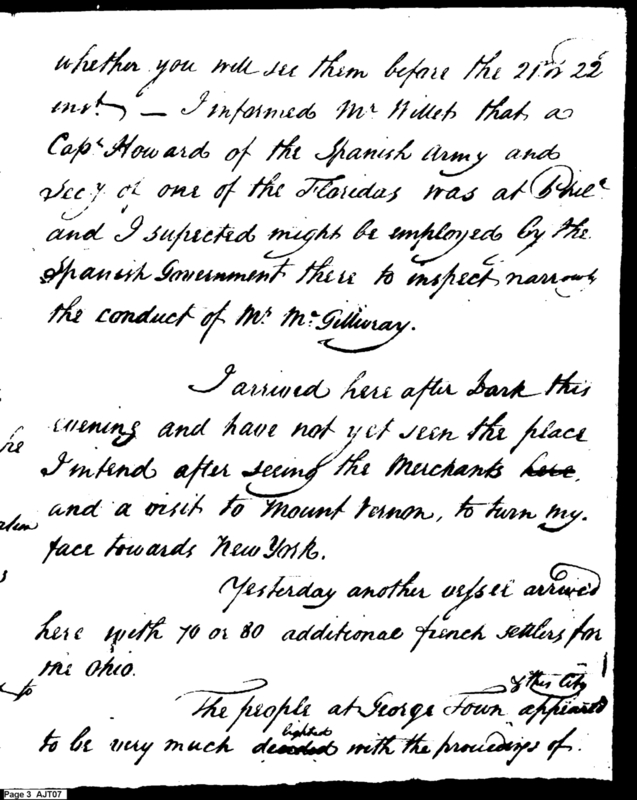 whether you will see them before the 21st or 22d
inst. — I informed Mr Willet that a
Capt Howard of the Spanish Army and
Secy of one of the Floridas was at Phila
and I supected might be employed by the
Spanish Government there to inspect narrowly
the conduct of Mr McGillivray.
I arrived here after Dark this
evening and have not yet seen the place
I intend after seeing the Merchants here,
and a visit to Mount Vernon, to turn my
face towards New York.
Yesterday another vessel arrived
here with 70 or 80 additional french settlers for
the Ohio.
& this City
The people at George Town appeared
lighted
to be very much with the proceedings of
he
to
Page 3 AJT07